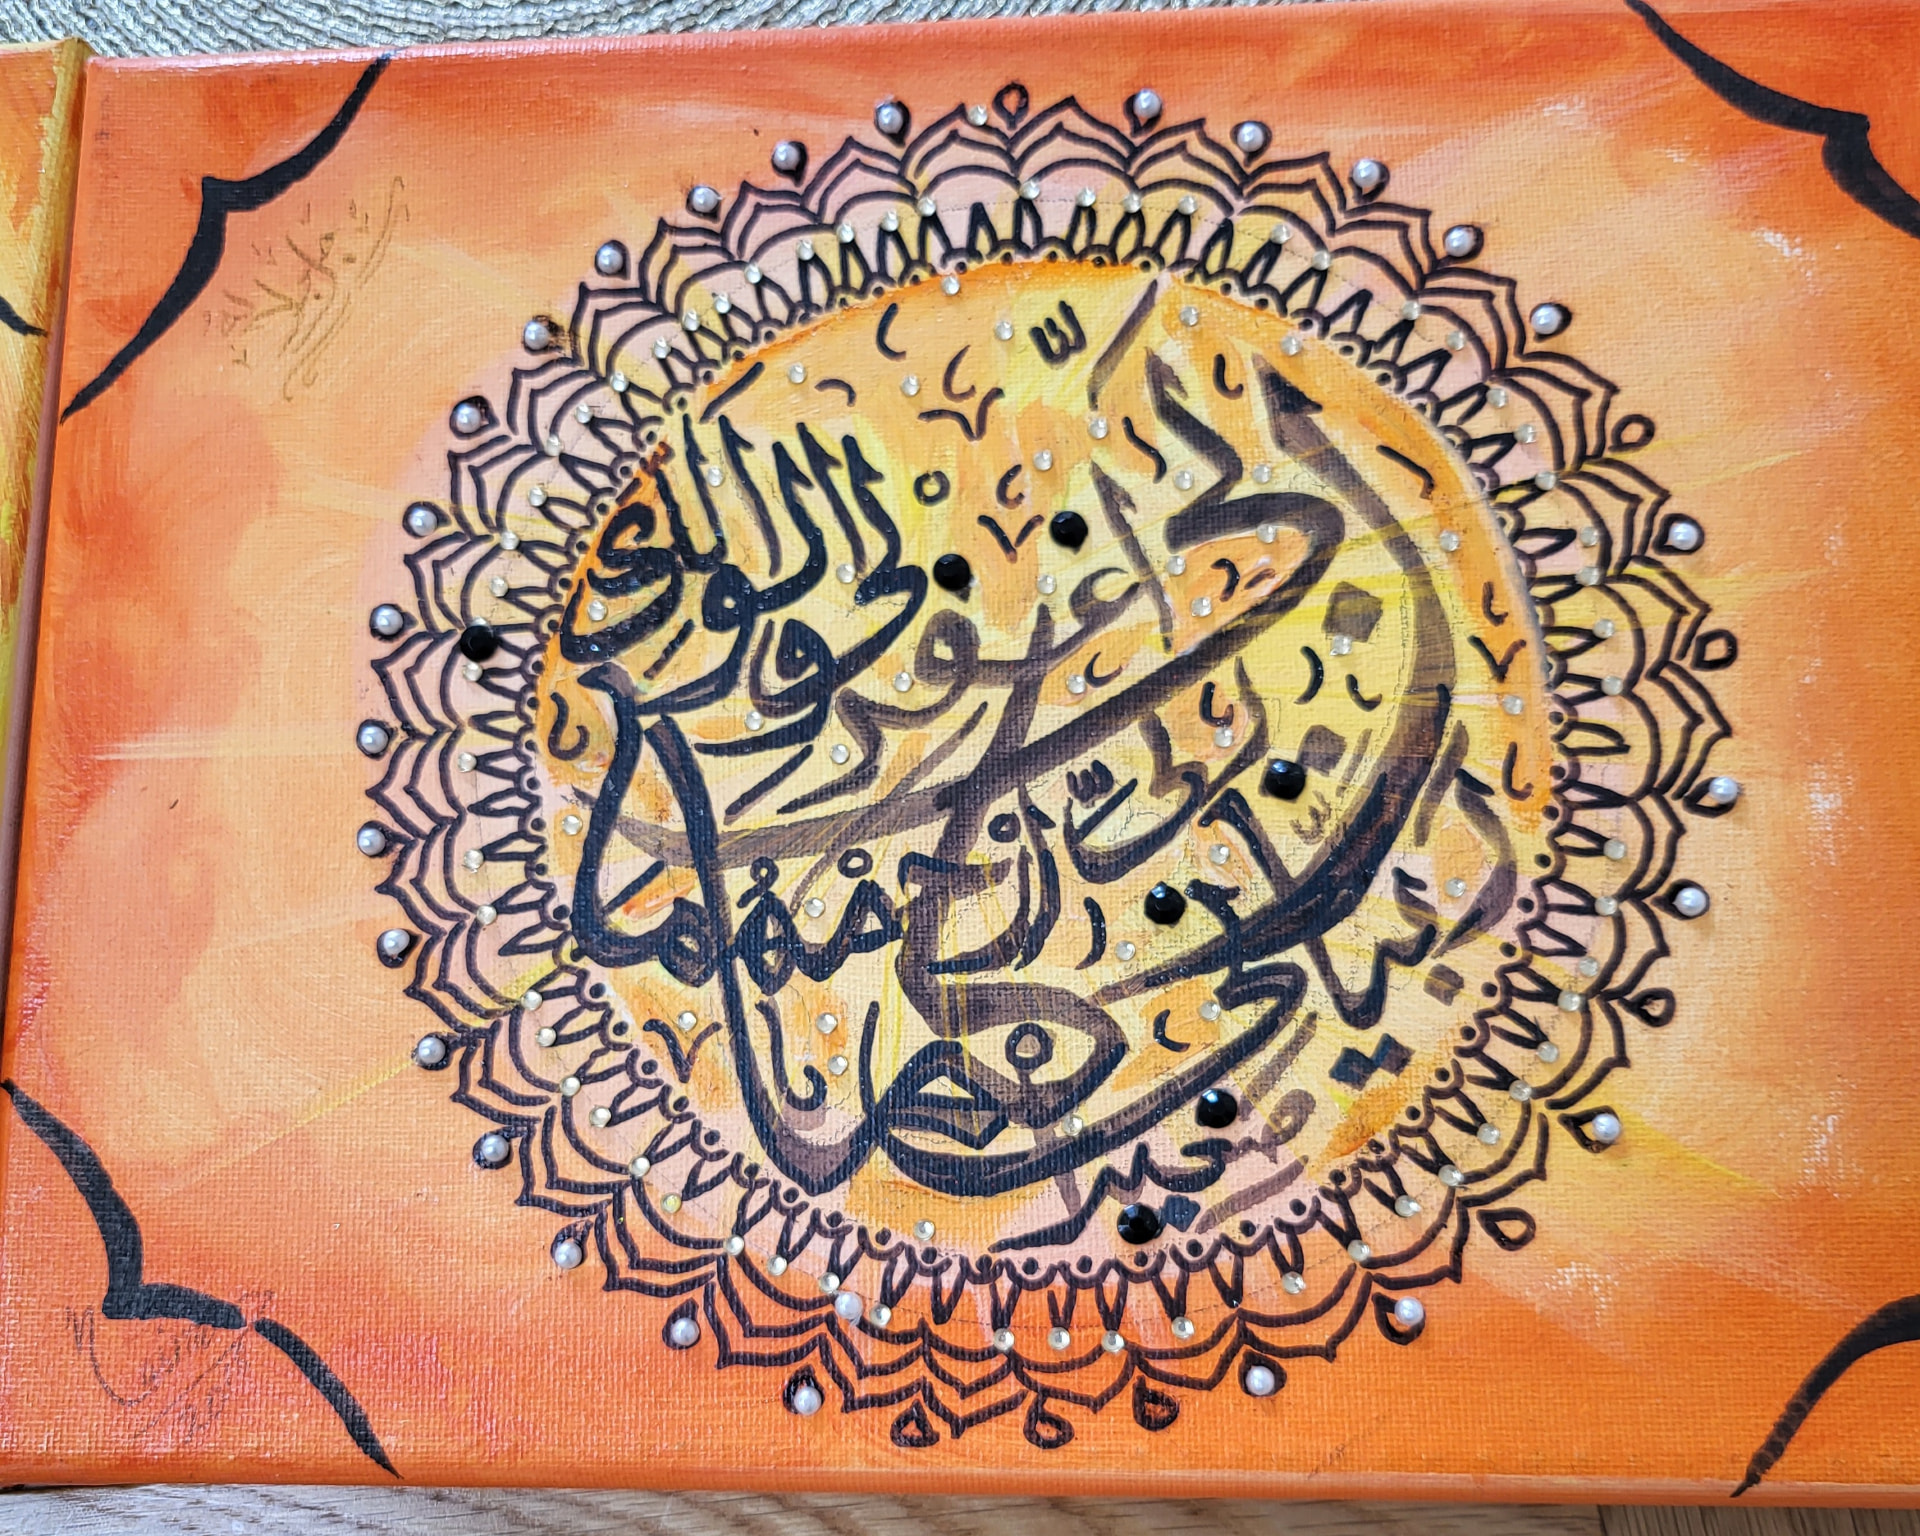 رَبِّ اغْفِرْ لِي وَلِوَالِدَيَّ
رَبِّ ارْحَمْهُمَا
كَمَا رَبَّيَانِي
صَغِيرًا